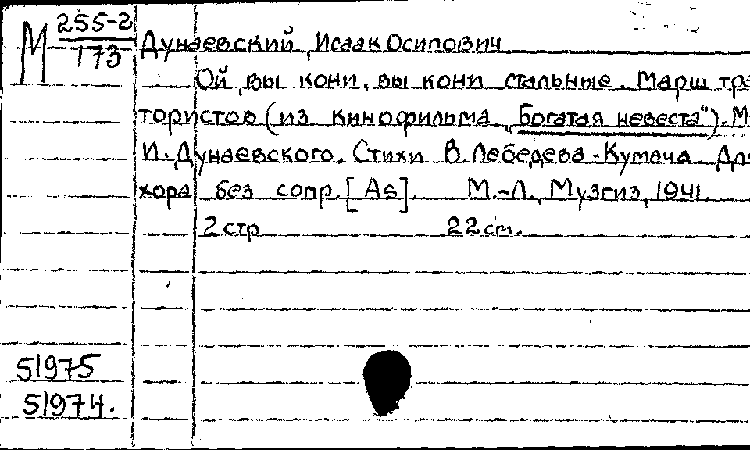 М 255-2
173
Дунаевский, Исаак Осипович
Ой вы кони, вы кони стальные. Марш тра
тористов (из кинофильма „Богатая невеста"). М
И. Дунаевского. Стихи В. Лебедева-Кумача. Дл
хора без сопр. [As]. М.-Л., Музгиз, 1941.
2 стр 22 см.
51975
51974.